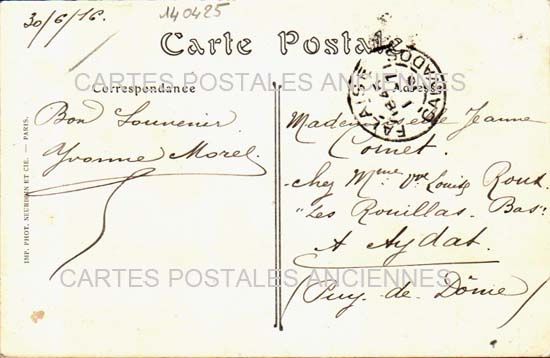 30/6/16.
140425
Carte Postale
CARTES POSTALES ANCIENNES
Correspondance
Adresse
FALAISE
CALVADOS
Bon Souvenir
Yvonne Morel
Mademoiselle Jeanne
Cornet.
chez Mme Vve Louis Roux
"Les Rouillas-Bas"
A Aydat.
(Puy-de-Dôme)
CARTES POSTALES ANCIENNES
IMP. PHOT. NEURDEIN ET CIE. — PARIS.